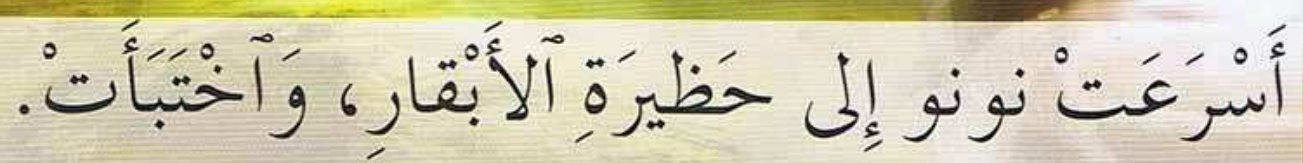 أَسْرَعَتْ نونو إِلى حَظيرَةِ ٱلأَبْقارِ، وَٱخْتَبَأَتْ.